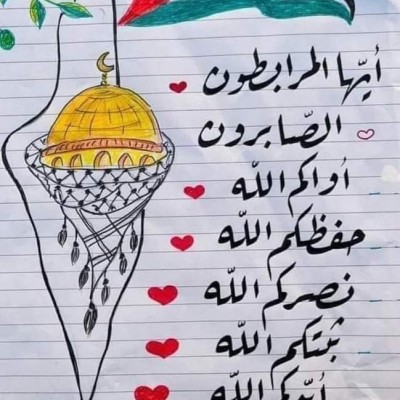 أيّها المرابطون
الصّابرون
أواكم الله
حفظكم الله
نصركم الله
ثبتكم الله
أيّدكم الله